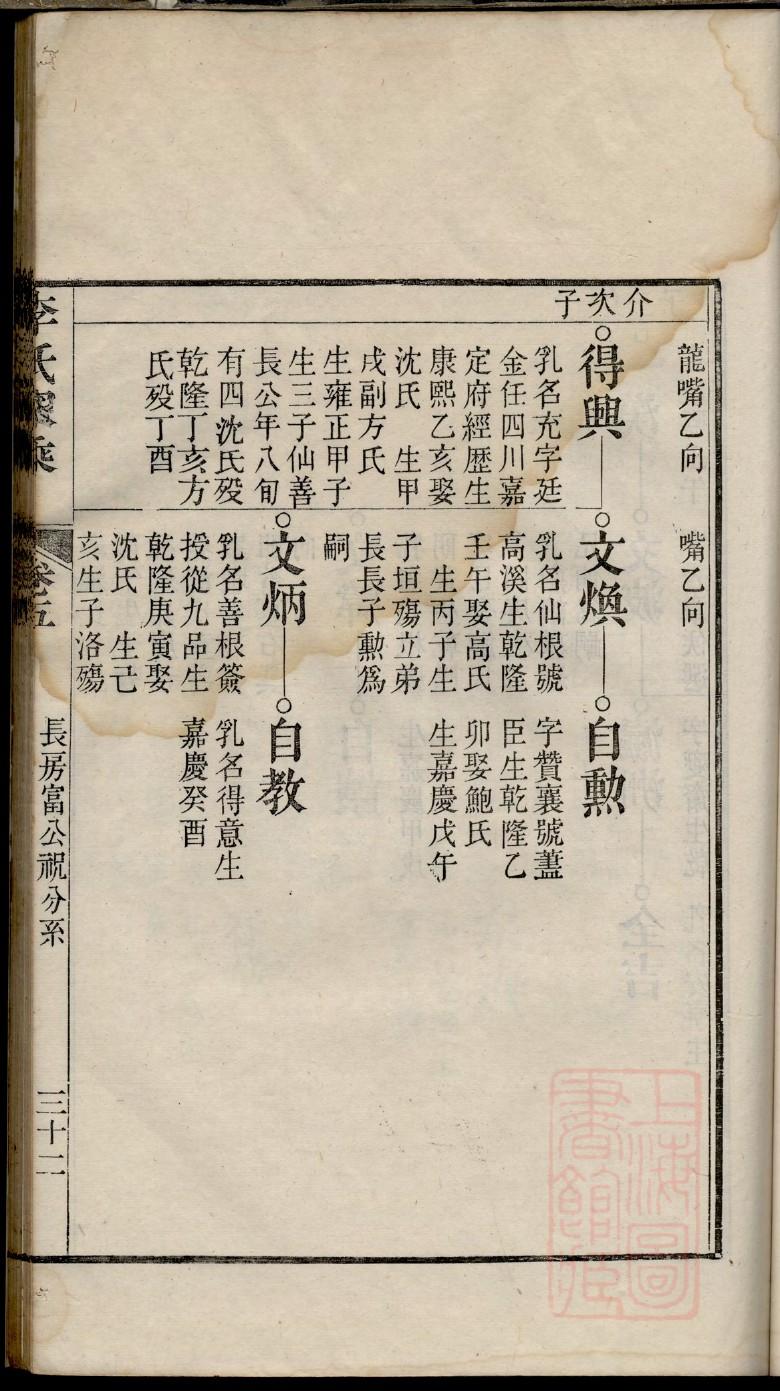 龍嘴乙向
嘴乙向
介次子
得興
乳名充字廷
金任四川嘉
定府經歷生
康熙乙亥娶
沈氏 生甲
戌副方氏
生雍正甲子
生三子仙善
長公年八旬
有四沈氏殁
乾隆丁亥方
氏殁丁酉
文煥
乳名仙根號
高溪生乾隆
壬午娶高氏
生丙子生
子垣殤立弟
長長子勳爲
嗣
自勳
字贊襄號藎
臣生乾隆乙
卯娶鮑氏
生嘉慶戊午
文炳
乳名善根簽
授從九品生
乾隆庚寅娶
沈氏 生己
亥生子洛殤
自教
乳名得意生
嘉慶癸酉
李氏家乘
卷五
長房富公祝分系
三十二
上海圖
書館藏